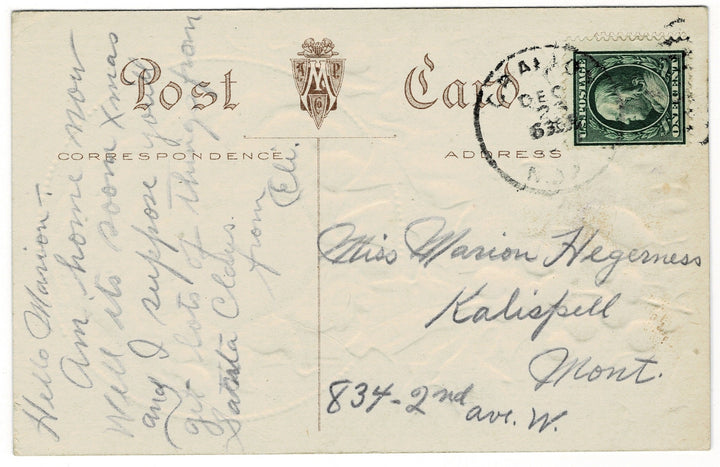 Post Card
CORRESPONDENCE
ADDRESS
DEC
U.S. POSTAGE
ONE CENT
Hello Marion -
Am home now
Well its soon Xmas
and I suppose you'll
get lots of things from
Santa Claus.
from
Eli.
Miss Marion Hegerness
Kalispell
Mont.
834 - 2nd
ave. W.